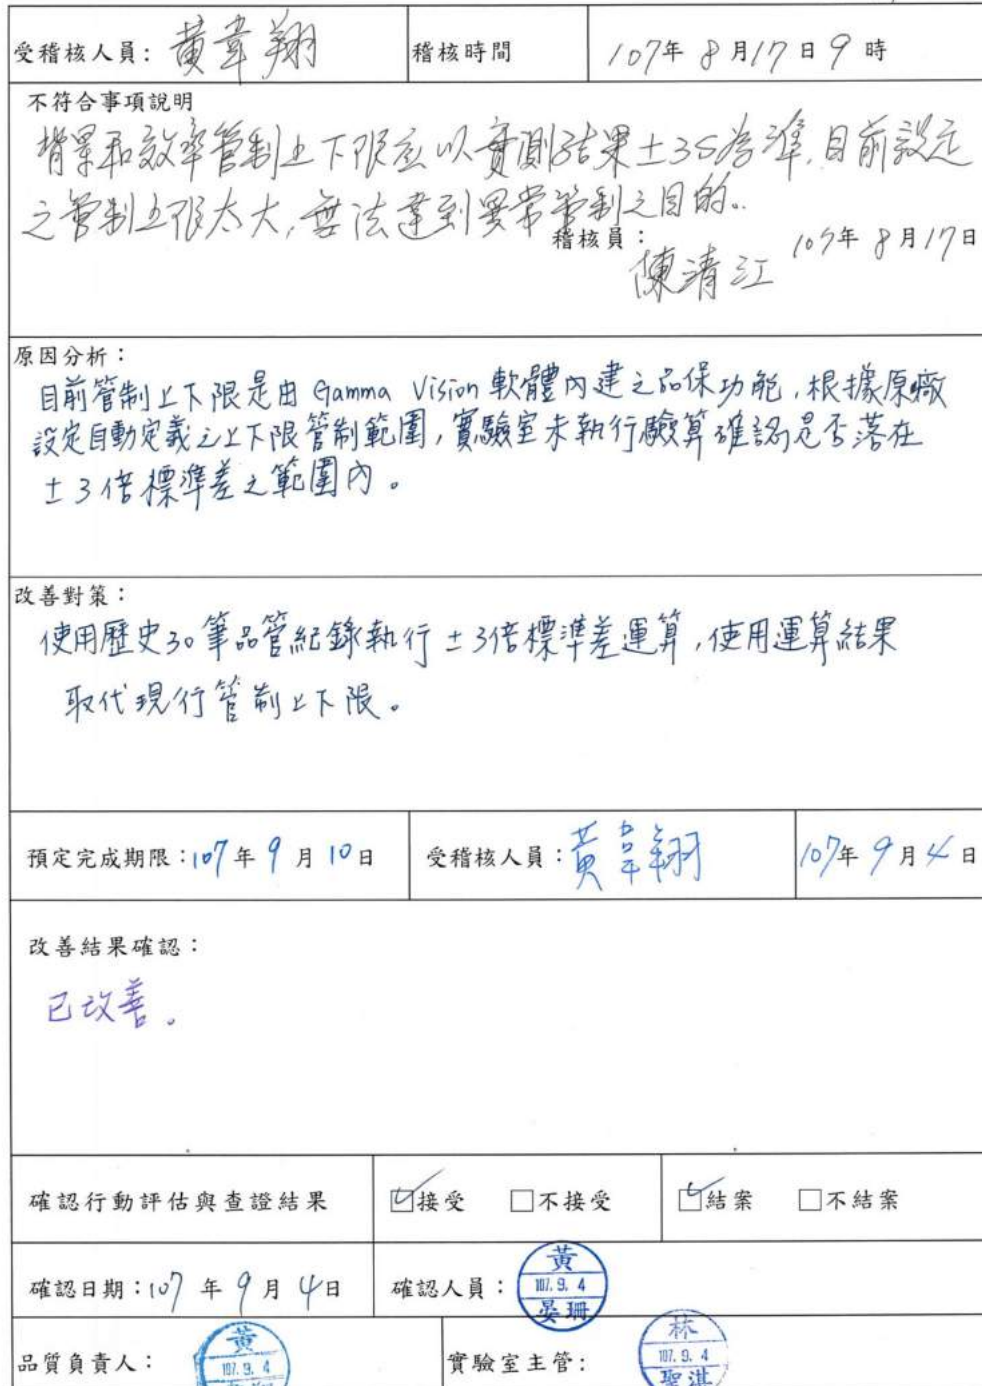 受稽核人員: 黃韋翔 稽核時間 107年 8月17日 9時
不符合事項說明
背景和效率管制上下限應以實測結果±3S為準,目前設定
之管制上下限太大,無法達到異常管制之目的。
稽核員: 陳清江 107年 8月17日
原因分析:
目前管制上下限是由 Gamma Vision 軟體內建之品保功能,根據原廠
設定自動定義之上下限管制範圍,實驗室未執行驗算確認是否落在
±3倍標準差之範圍內。
改善對策:
使用歷史30筆品管紀錄執行±3倍標準差運算,使用運算結果
取代現行管制上下限。
預定完成期限:107年 9月 10日 受稽核人員:黃韋翔 107年 9月 4日
改善結果確認:
已改善。
確認行動評估與查證結果 ☑接受 □不接受 ☑結案 □不結案
確認日期:107年 9月 4日 確認人員: 黃 107.9.4 晏珊
品質負責人: 黃 107.9.4 實驗室主管: 林 107.9.4 聖淇